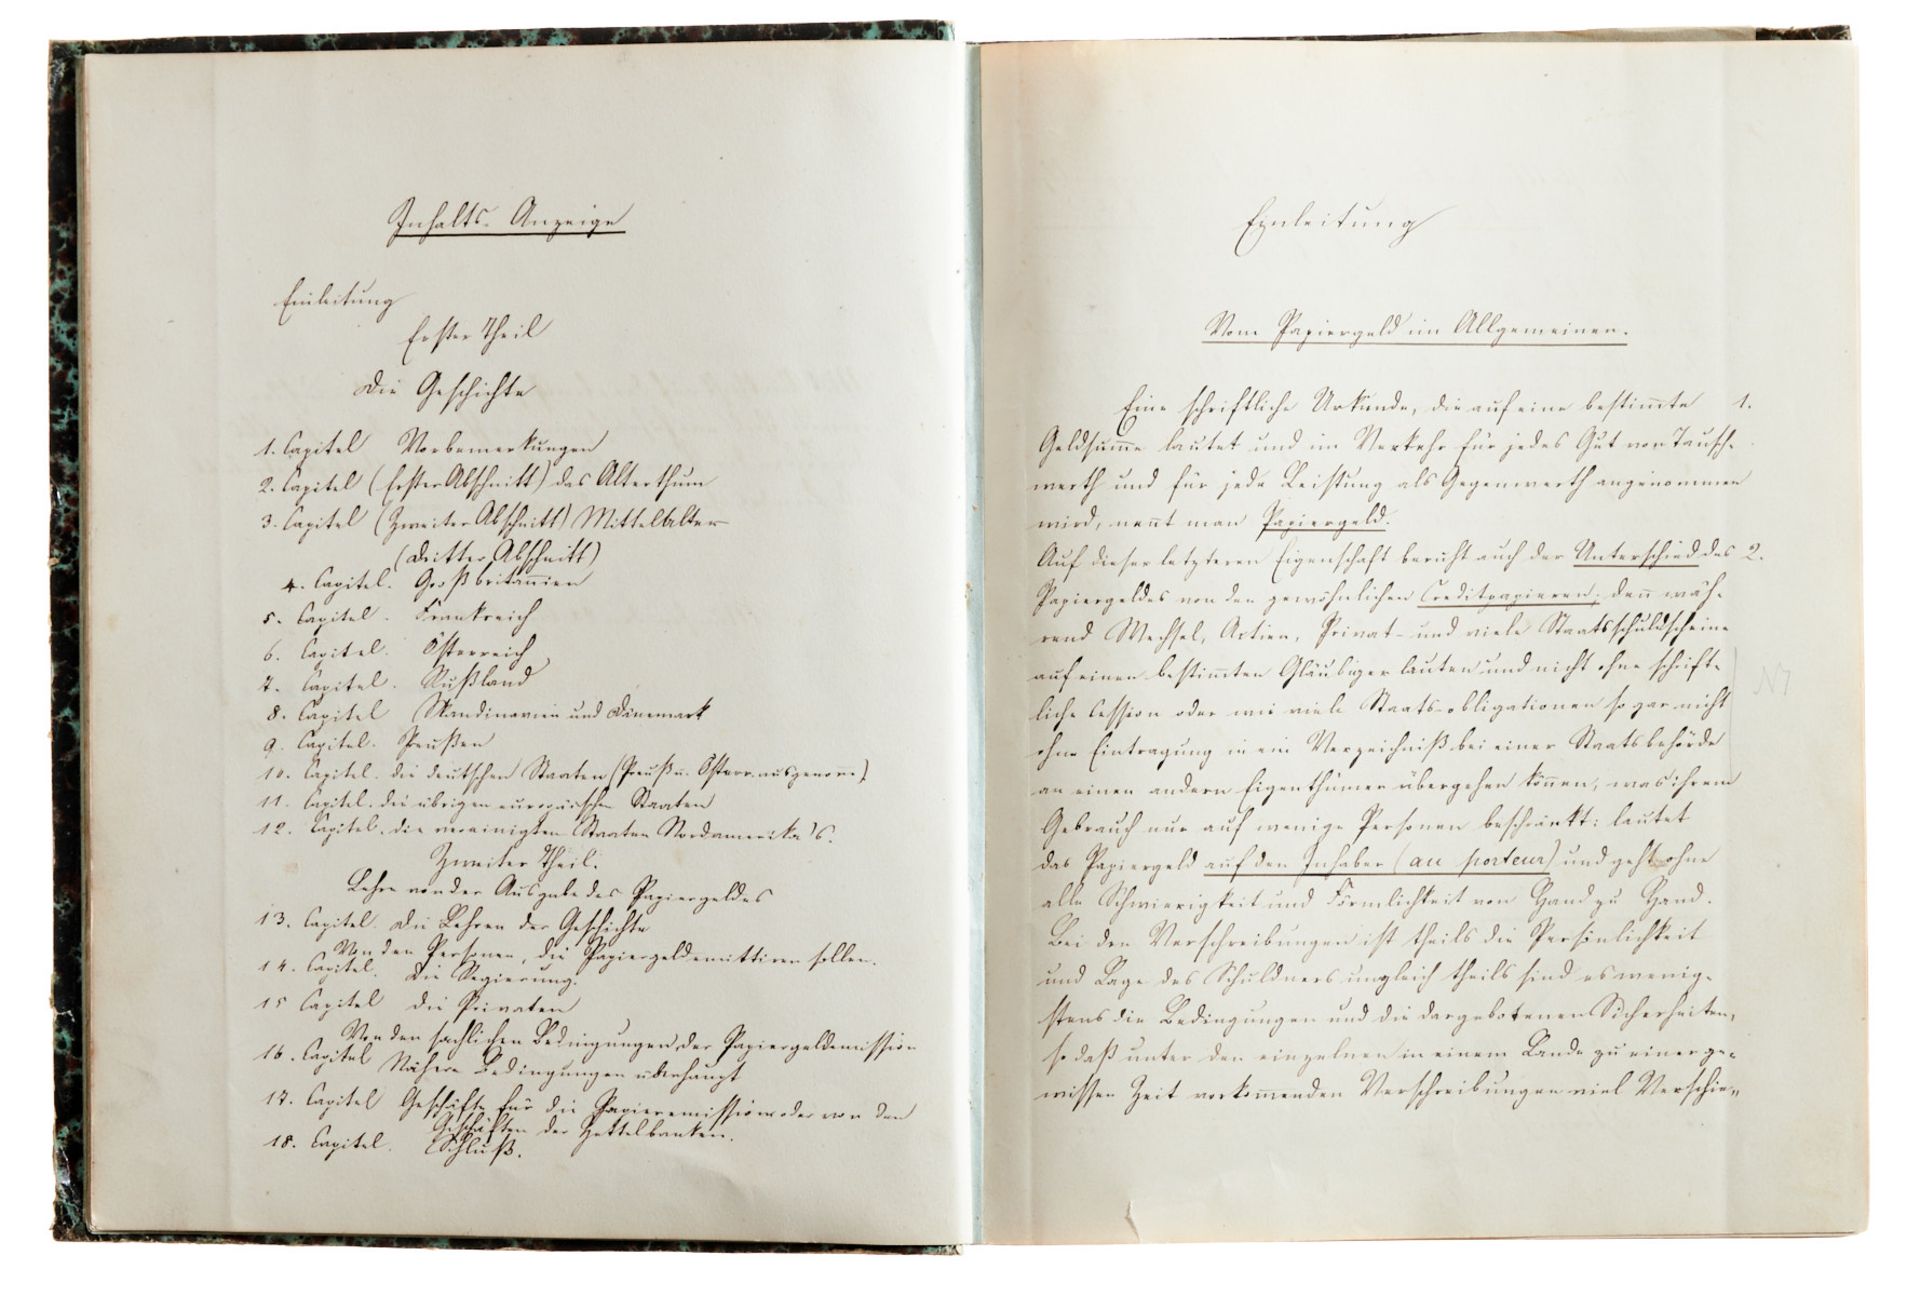 Inhalts-Anzeige
Einleitung
Erster Theil
Die Geschichte
1. Capitel Vorbemerkungen
2. Capitel (Erster Abschnitt) das Alterthum
3. Capitel (Zweiter Abschnitt) Mittelalter
(Dritter Abschnitt)
4. Capitel. Großbritan̄ien
5. Capitel. Frankreich
6. Capitel. Österreich
7. Capitel. Rußland
8. Capitel Skandinavien und Dänemark
9. Capitel. Preußen
10. Capitel. die deutschen Staaten (Preuß u. Österr. ausgenom̄.)
11. Capitel. die übrigen europäischen Staaten
12. Capitel. die vereinigten Staaten Nordamerika's.
Zweiter Theil.
Lehre von der Ausgabe des Papiergeldes
13. Capitel. Die Lehren der Geschichte
Von den Personen, die Papiergeld emittiren sollen.
14. Capitel. Die Regierung.
15 Capitel die Privaten
Von den sachlichen Bedingungen der Papiergeldemission
16. Capitel Nähere Bedingungen überhaupt
17. Capitel Geschäfte für die Papieremission oder von den
Geschäften der Zettelbanken.
18. Capitel. Schluß.
Einleitung
Vom Papiergeld im Allgemeinen.
Eine schriftliche Urkunde, die auf eine bestim̄te 1.
Geldsum̄e lautet und im Verkehr für jedes Gut von Tausch-
werth und für jede Leistung als Gegenwerth angenommen
wird, nen̄t man Papiergeld.
Auf dieser letzteren Eigenschaft beruht auch der Unterschied des 2.
Papiergeldes von den gewöhnlichen Creditpapieren; den̄ wäh-
rend Wechsel, Actien, Privat- und viele Staatsschuldscheine
auf einen bestim̄ten Gläubiger lauten und nicht ohne schrift-
liche Cession oder wie viele Staats-obligationen so gar nicht
ohne Eintragung in ein Verzeichniß bei einer Staatsbehörde
an einen andern Eigenthümer übergehen kön̄en, was ihrem
Gebrauch nur auf wenige Personen beschränkt: lautet
das Papiergeld auf den Inhaber (au porteur) und geht ohne
alle Schwierigkeit und Förmlichkeit von Hand zu Hand.
Bei den Verschreibungen ist theils die Persönlichkeit
und Lage des Schuldners ungleich theils sind es wenig-
stens die Bedingungen und die dargebotenen Sicherheiten,
so daß unter den einzelnen in einem Lande zu einer ge-
wissen Zeit vorkom̄enden Verschreibungen viel Verschie-